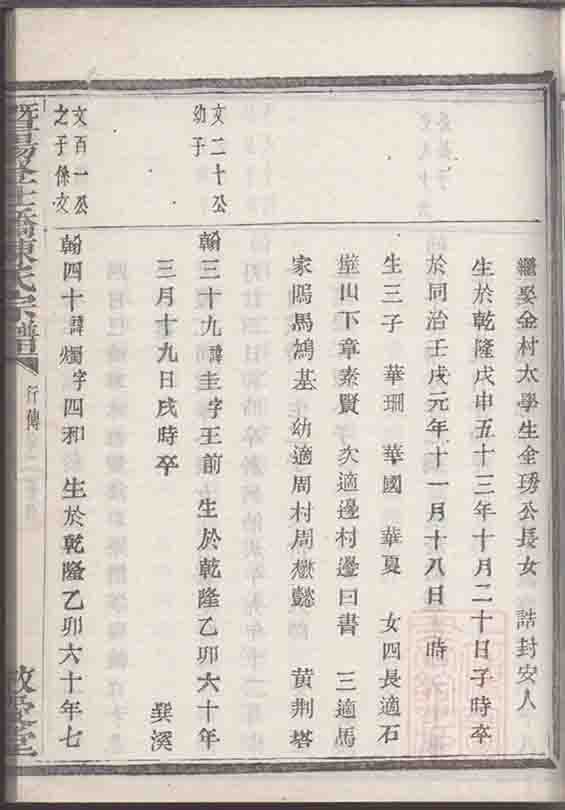 繼娶金村太學生金琇公長女 誥封安人
生於乾隆戊申五十三年十月二十日子時卒
於同治壬戌元年十一月十八日 時
生三子 華珊 華國 華夏 女四長適石
壁山下章素賢 次適邊村邊曰書 三適馬
家塢馬鴻基 幼適周村周懋懿 黃荆塔
文二十公
幼子
翰三十九諱圭字王前 生於乾隆乙卯六十年
三月十九日戌時卒 巽溪
文百一公
之子係文
翰四十諱燭字四和 生於乾隆乙卯六十年七
陳氏宗譜
行傳
堂